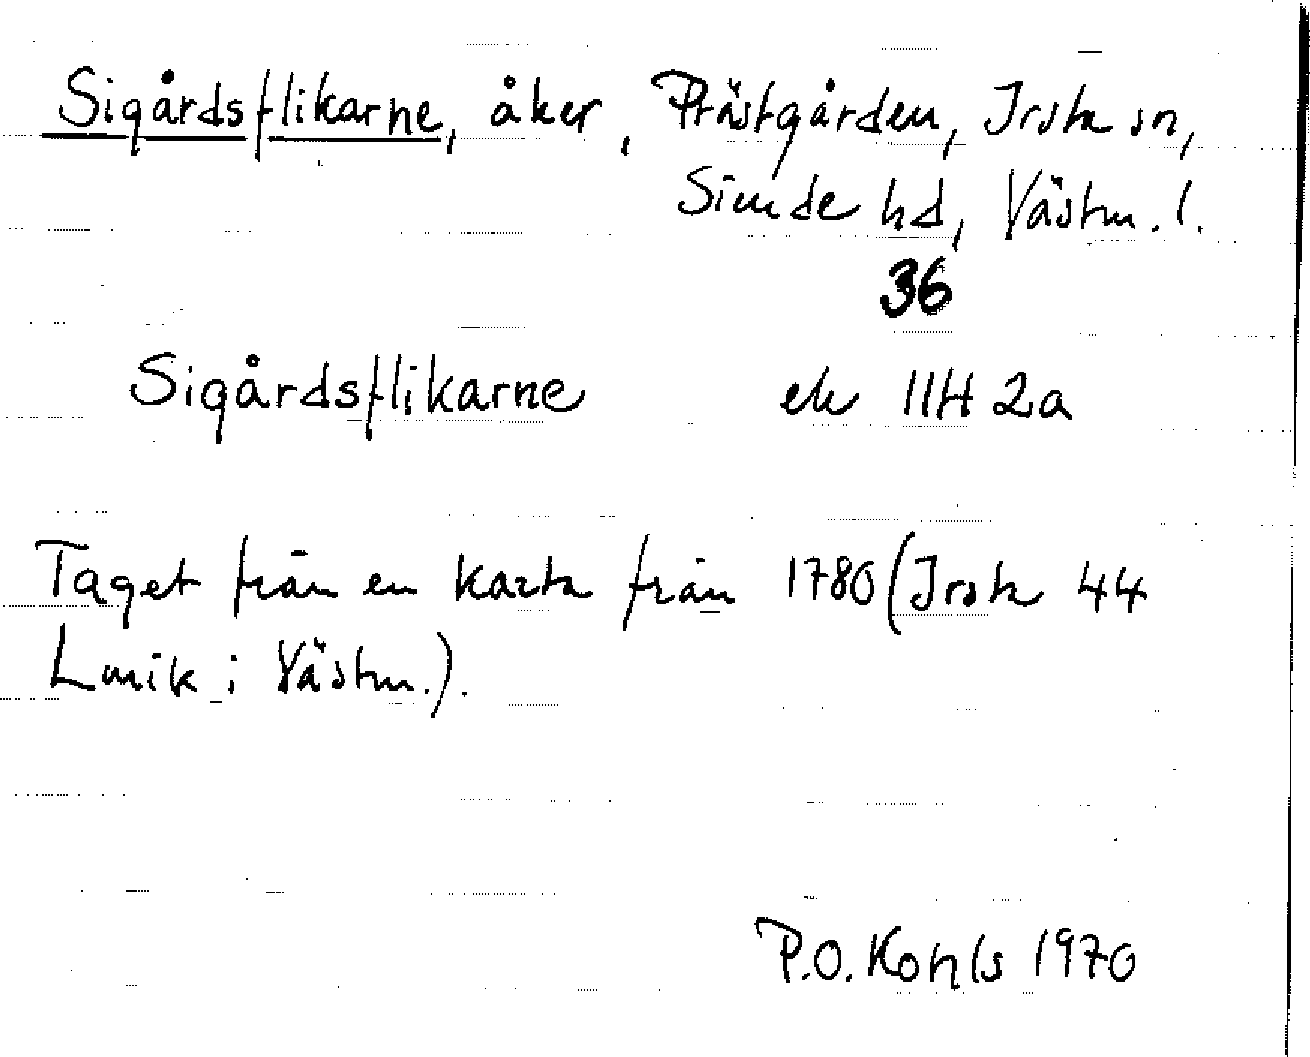 Sigårdsflikarne, åker, Prästgården, Irsta sn,
Simde hd, Västm. l.
36
Sigårdsflikarne ek 11H 2a
Taget från en karta från 1780 (Irsta 44
Lmik i Västm.).
P.O. Kohls 1970